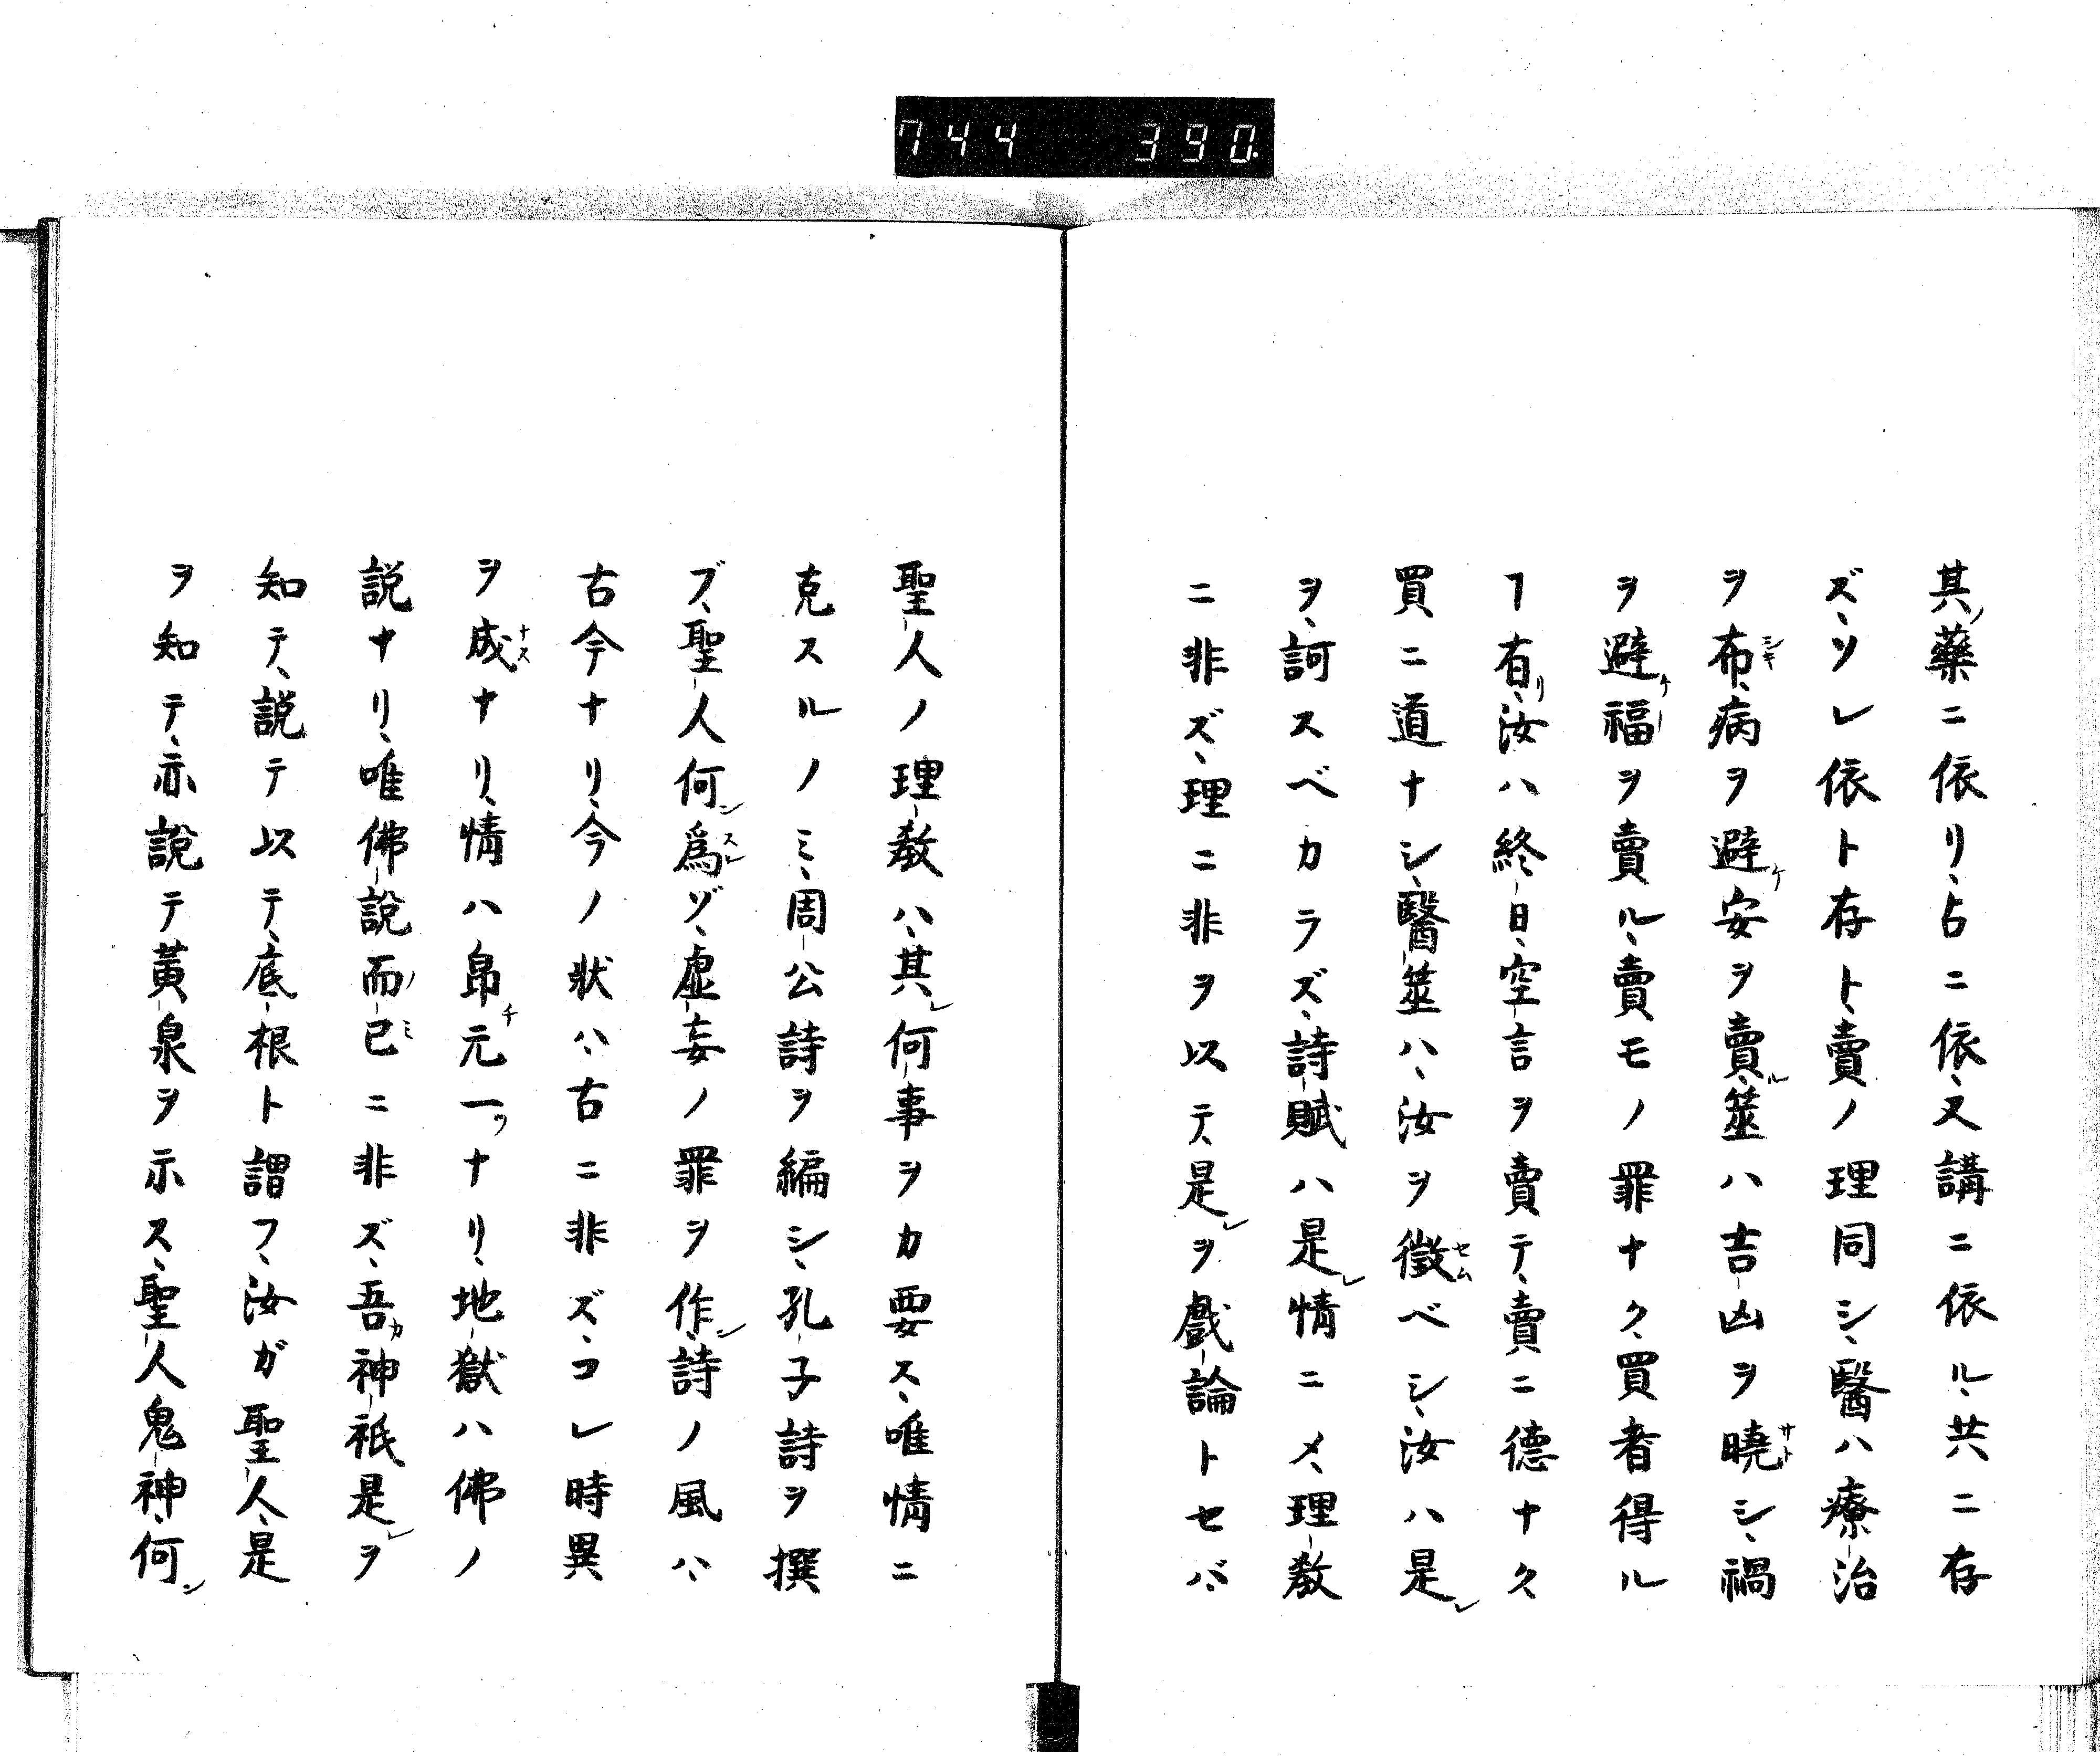 744 390.
其ノ藥ニ依リ、占ニ依、又講ニ依ル、共ニ存
ズ、ソレ依ト存ト、賣ノ理同シ、醫ハ療治
ヲ布シキ、病ヲ避ケ安ヲ賣ル、筮ハ吉凶ヲ曉サトシ、禍
ヲ避ケ福ヲ賣ル、賣モノ罪ナク、買者得ル
ヿ有リ、汝ハ終日、空言ヲ賣テ、賣ニ德ナク、
買ニ道ナシ、醫筮ハ、汝ヲ徵セムベシ、汝ハ是レ
ヲ、訶スベカラズ、詩賦ハ是レ情ニメ、理敎
ニ非ズ、理ニ非ヲ以テ、是レヲ戲論トセバ、
聖人ノ理敎ハ、其レ何事ヲカ要ス、唯情ニ
克スルノミ、周公詩ヲ編シ、孔子詩ヲ撰
ブ、聖人何ン爲スレゾ、虛妄ノ罪ヲ作ン、詩ノ風ハ、
古今ナリ、今ノ狀ハ、古ニ非ズ、コレ時異
ヲ成ナスナリ、情ハ帛チ元一ツナリ、地獄ハ佛ノ
説ナリ、唯佛説而ノ已ミニ非ズ、吾カ神祇是レヲ
知テ、説テ以テ、底根ト謂フ、汝ガ聖人、是
ヲ知テ、亦説テ黃泉ヲ示ス、聖人鬼神、何ン